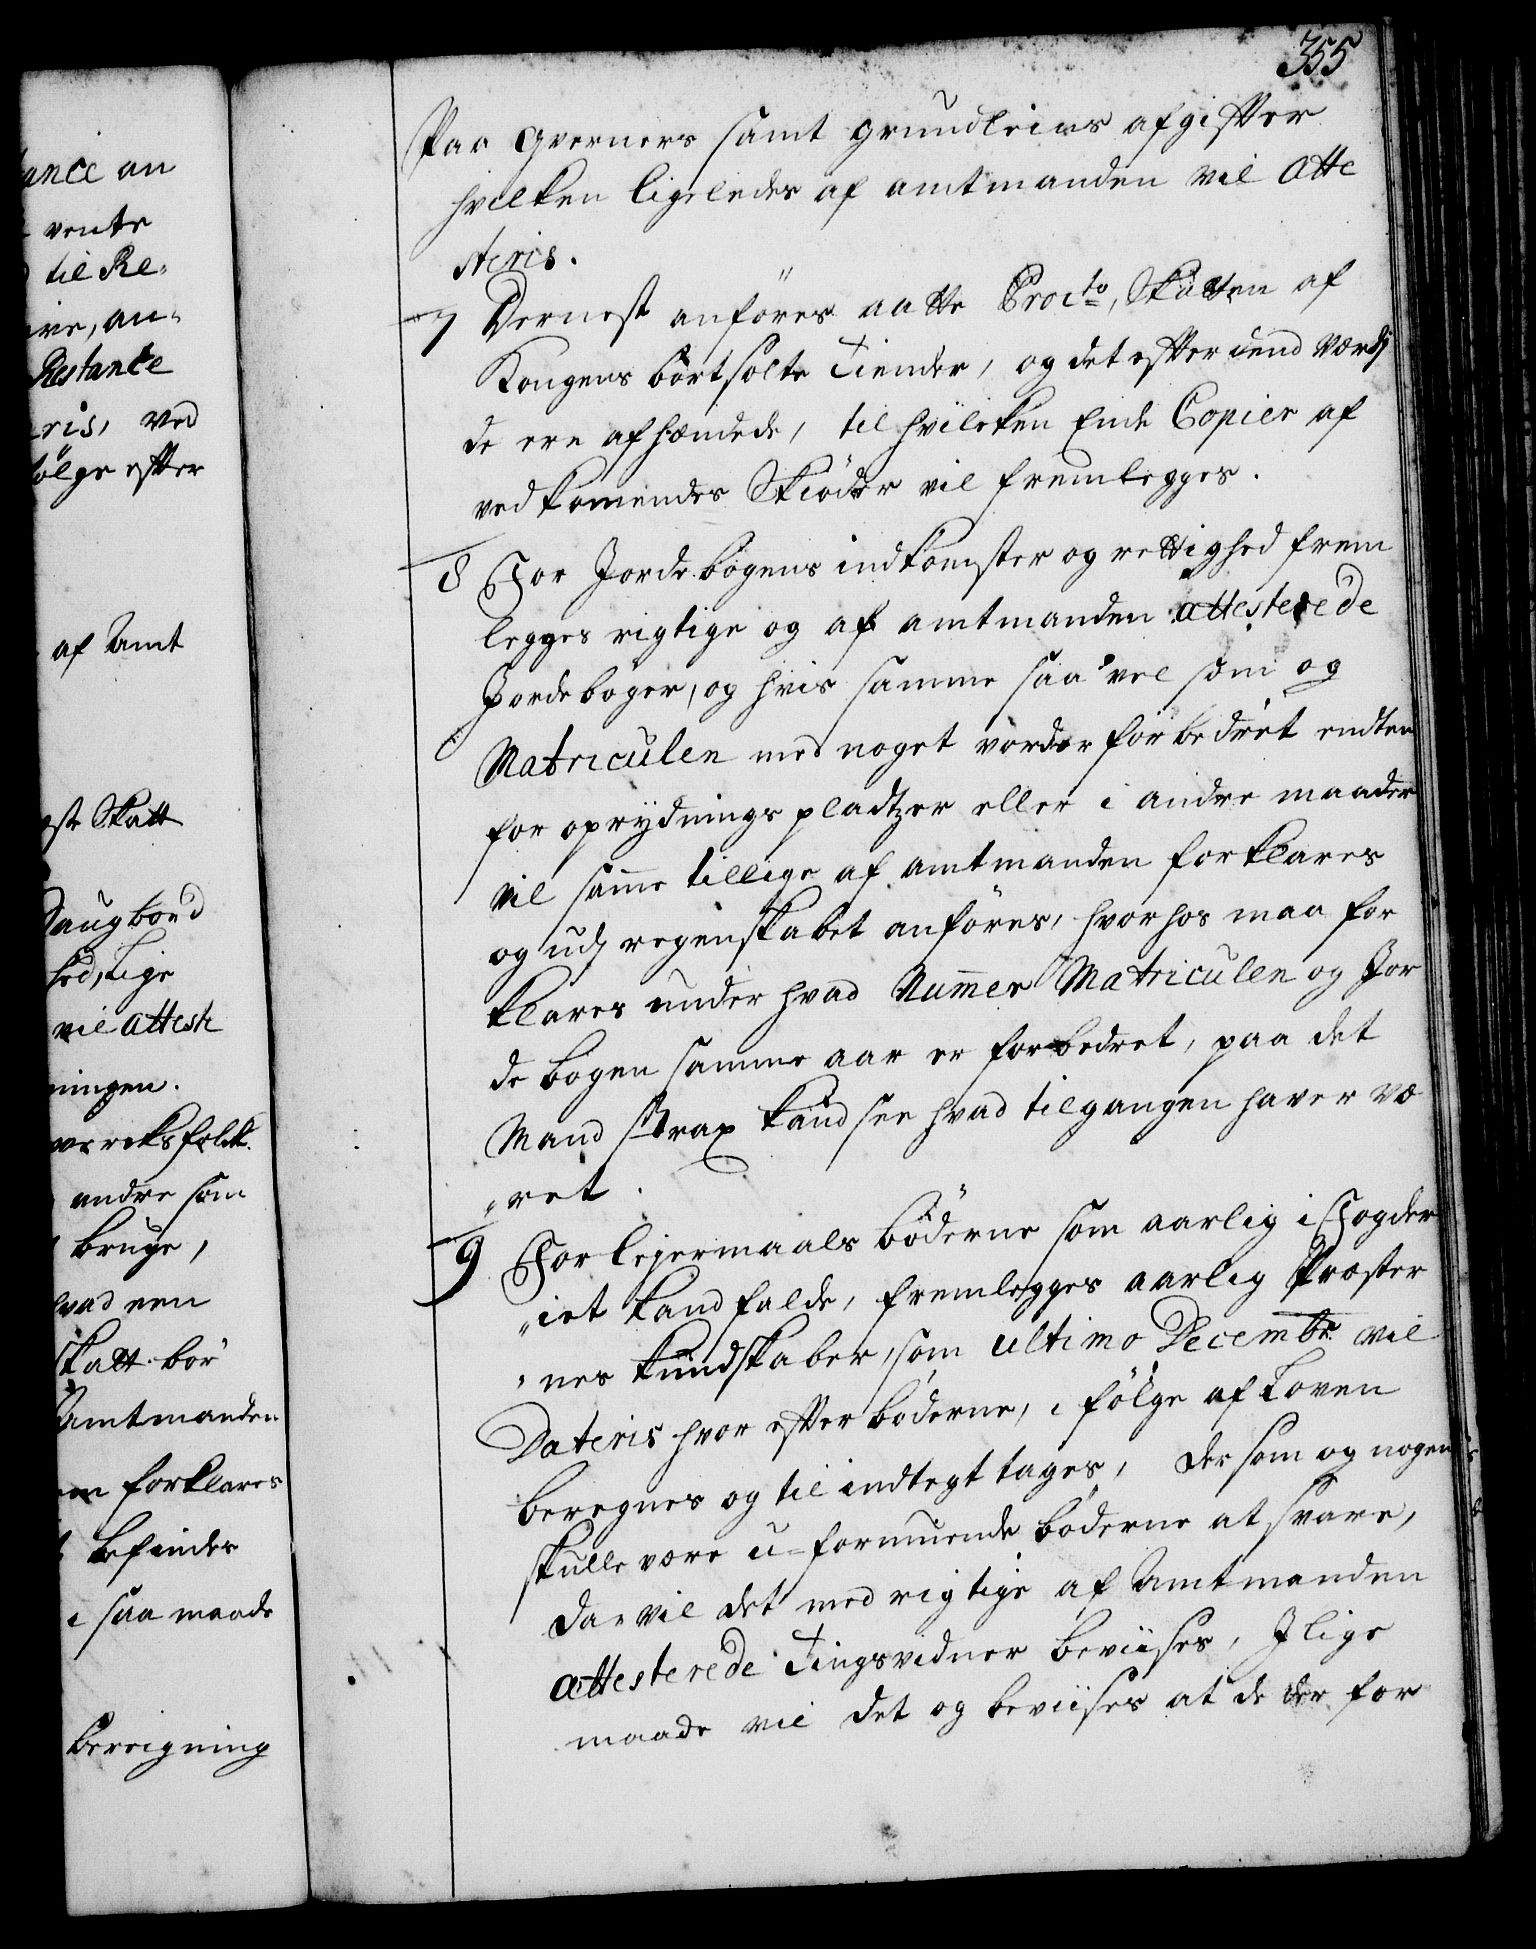 355
Paa qverners samt grundleies afgifter
hvilken ligeledes af amtmanden vil atte
steris.
7 Dernest anföres aatte Procto, Skatten af
Kongens bortsolte Tiender, og det efter dend Værdj
de ere afhændede, til hvilcken Ende Copier af
vedkommendes Skiöder vil fremlegges.
8 For Jordebogens indkomster og rettighed frem
legges rigtige og af amtmanden attesterede
Jordeboger, og hvis samme saavel som og
Matriculen med noget vorder forbedret endten
for oprydnings pladtzer eller i andre maader
vil samme tillige af amtmanden forklares
og udj regenskabet anföres, hvorhos maa for
klares under hvad Nummer Matriculen og Jor
de bogen samme aar er forbedret, paa det
Mand strax kand see hvad tilgangen haver væ
"ret.
9 For lejermaals böderne som aarlig i Fogder
"iet kand falde, fremlegges aarlig Præster
"nes kundskaber, som ultimo Decembr vil
Dateris hvor efter böderne, i fölge af Loven
beregnes og til indtegt tages, der som og nogen
skulle være u-formuende böderne at svare,
da vil det med rigtige af Amtmanden
attesterede Tingsvidner beviises, Jlige
maade vil det og beviises at de der for
ance an
vente
til Re-
ive, an-
Restance
ris, ved
fölge efter
af Amt
Skatt
Saugbord
hed, Lige
vil atteste
ningen.
vercksfolck
andre som
bruge,
hvad een
skatt bör
Amtmanden
forklares
befindes
i saa maade
Bereigning